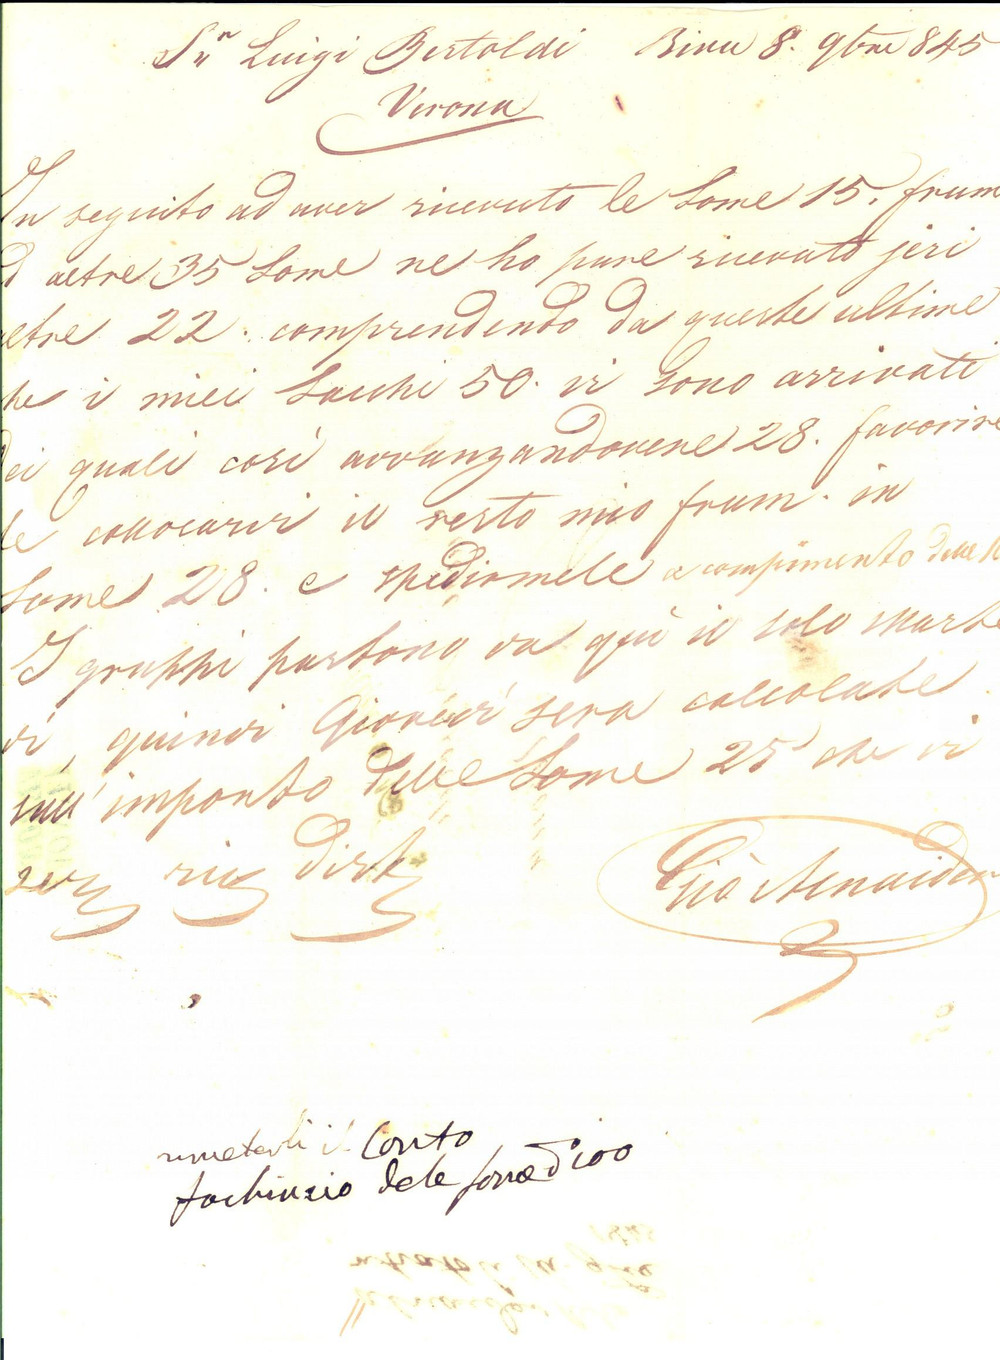 Sn.r Luigi Bertoldi Riva 8. 9bre 845
Verona
In seguito ad aver ricevuto le Some 15. frum
altre 35 Some ne ho pure ricevuto jeri
altre 22. comprendendo da queste ultime
che i miei Sacchi 50. vi sono arrivati
dei quali così avvanzandovene 28. favorire
te collocarvi il resto mio frum. in
Some 28. e spedirmele a compimento delle
I gruppi partono da quì il solo Marte
dì, quindi Giovedì sera calcolate
sull' importo delle Some 25 che vi
Giò Armaidi
rimeterli il Conto
fachinsio dele some di 100